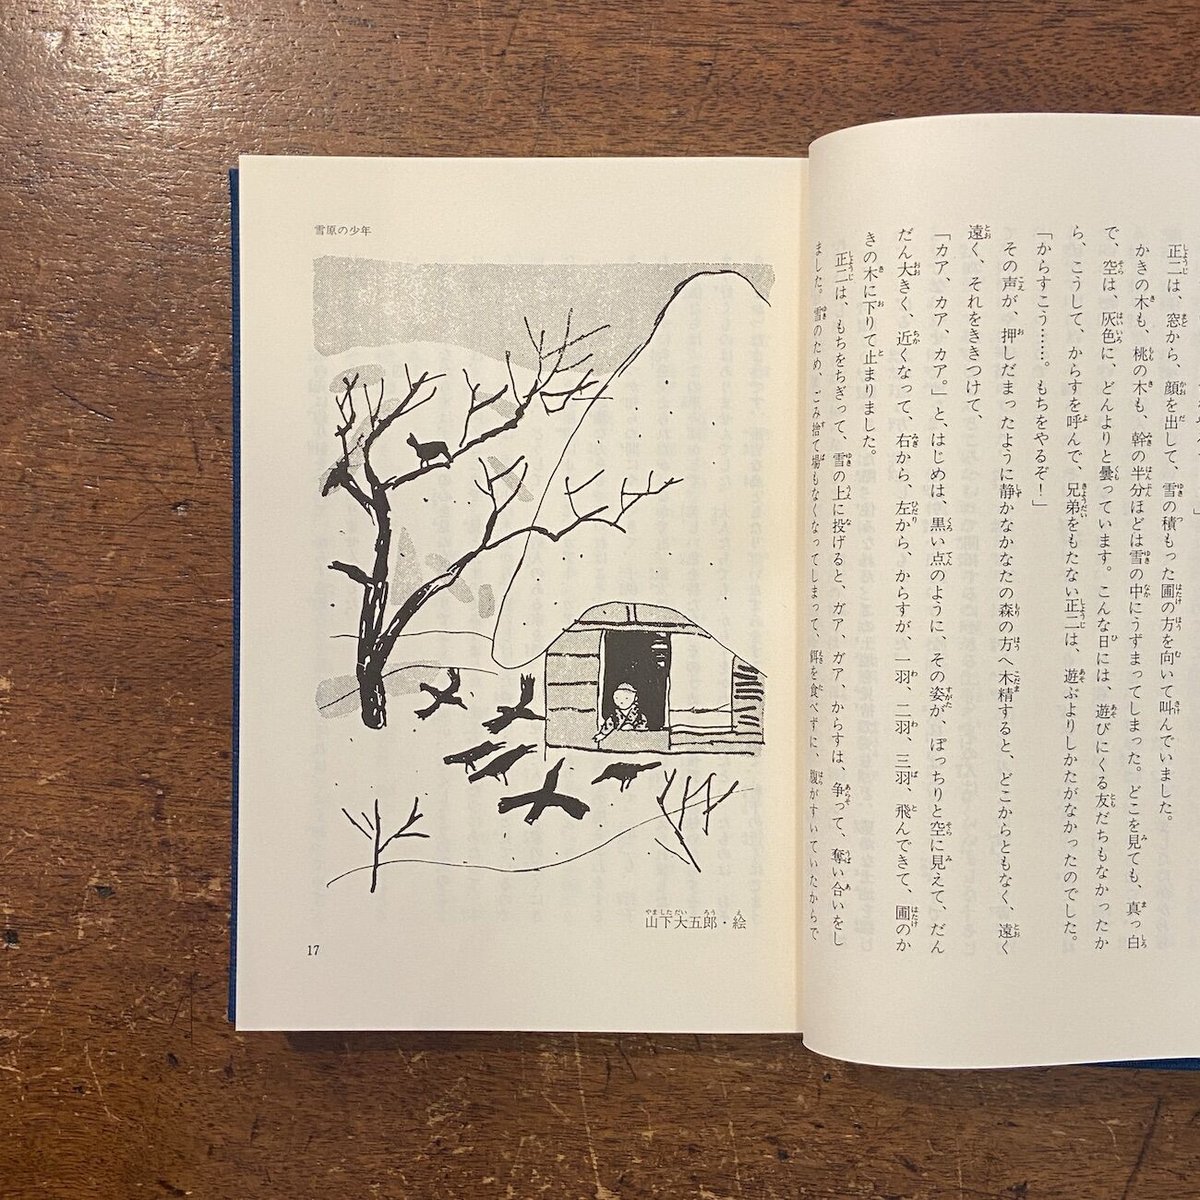 雪原の少年
」
正二は、窓から、顔を出して、雪の積もった圃の方を向いて叫んでいました。
かきの木も、桃の木も、幹の半分ほどは雪の中にうずまってしまった。どこを見ても、真っ白
で、空は、灰色に、どんよりと曇っています。こんな日には、遊びにくる友だちもなかったか
ら、こうして、からすを呼んで、兄弟をもたない正二は、遊ぶよりしかたがなかったのでした。
「からすこう……。もちをやるぞ！」
その声が、押しだまったように静かなかなたの森の方へ木精すると、どこからともなく、遠く
遠く、それをききつけて、
「カア、カア、カア。」と、はじめは、黒い点のように、その姿が、ぽっちりと空に見えて、だん
だん大きく、近くなって、右から、左から、からすが、一羽、二羽、三羽、飛んできて、圃のか
きの木に下りて止まりました。
正二は、もちをちぎって、雪の上に投げると、ガア、ガア、からすは、争って、奪い合いをし
ました。雪のため、ごみ捨て場もなくなってしまって、餌を食べずに、腹がすいていたからで
山下大五郎・絵
17